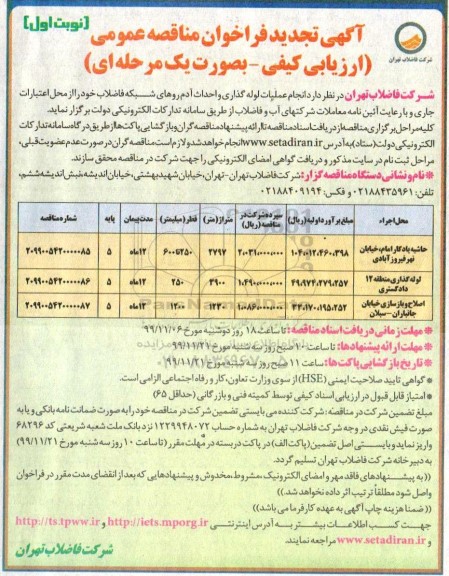 [نوبت اول]
آگهی تجدید فراخوان مناقصه عمومی
(ارزیابی کیفی - بصورت یک مرحله ای)
شرکت فاضلاب تهران
شرکت فاضلاب تهران در نظر دارد انجام عملیات لوله گذاری و احداث آدم روهای شبکه فاضلاب خود را از محل اعتبارات
جاری و با رعایت آئین نامه معاملات شرکتهای آب و فاضلاب از طریق سامانه تدارکات الکترونیکی دولت برگزار نماید.
کلیه مراحل برگزاری مناقصه از دریافت اسناد مناقصه تا ارائه پیشنهاد مناقصه گران و بازگشایی پاکتها از طریق درگاه سامانه تدارکات
الکترونیکی دولت (ستاد) به آدرس www.setadiran.ir انجام خواهد شد و لازم است مناقصه گران در صورت عدم عضویت قبلی،
مراحل ثبت نام در سایت مذکور و دریافت گواهی امضای الکترونیکی را جهت شرکت در مناقصه محقق سازند.
* نام و نشانی دستگاه مناقصه گزار: شرکت فاضلاب تهران - تهران، خیابان شهید بهشتی، خیابان اندیشه، نبش اندیشه ششم،
تلفن: ۰۲۱۸۸۴۳۵۹۶۱ و فکس: ۰۲۱۸۸۴۰۹۱۹۴
شماره مناقصه پایه مدت پیمان قطر (میلیمتر) متراژ (متر) سپرده شرکت در مناقصه (ریال) مبلغ برآورد اولیه (ریال) محل اجراء
۲۰۹۹۰۰۵۴۲۰۰۰۰۰۸۵ ۵ ۱۲ماه ۲۵۰تا۶۰۰ ۲۷۹۷ ۲،۰۳۱،۰۰۰،۰۰۰ ۱۰۴،۰۱۲،۴۶۰،۳۹۸ حاشیه یادگار امام، خیابان نهر فیروزآبادی
۲۰۹۹۰۰۵۴۲۰۰۰۰۰۸۶ ۵ ۱۲ماه ۲۵۰ ۳۹۰۰ ۱،۴۹۰،۰۰۰،۰۰۰ ۴۹،۹۷۴،۲۷۹،۲۵۷ لوله گذاری منطقه ۱۲ دادگستری
۲۰۹۹۰۰۵۴۲۰۰۰۰۰۸۷ ۵ ۱۲ماه ۱۲۰۰ ۱۲۳۰ ۱،۰۸۶،۰۰۰،۰۰۰ ۳۳،۱۷۰،۱۹۵،۲۵۲ اصلاح و بازسازی خیابان جانبازان - سبلان
* مهلت زمانی دریافت اسناد مناقصه: تا ساعت ۱۸ روز دوشنبه مورخ ۹۹/۱۱/۰۶
* مهلت ارائه پیشنهادها: تا ساعت ۱۰ صبح روز سه شنبه مورخ ۹۹/۱۱/۲۱
* تاریخ بازگشایی پاکت ها: ساعت ۱۱ صبح روز سه شنبه مورخ ۹۹/۱۱/۲۱
* گواهی تایید صلاحیت ایمنی (HSE) از سوی وزارت تعاون، کار و رفاه اجتماعی الزامی است.
* امتیاز قابل قبول در ارزیابی اسناد کیفی توسط کمیته فنی و بازرگانی (حداقل ۶۵)
مبلغ تضمین شرکت در مناقصه: شرکت کننده می بایستی تضمین شرکت در مناقصه خود را به صورت ضمانت نامه بانکی و یا به
صورت فیش نقدی در وجه شرکت فاضلاب تهران به شماره حساب ۱۲۲۹۹۴۸۰۷۲ نزد بانک ملت شعبه شریعتی کد ۶۸۲۹۶
واریز نماید و بایستی اصل تضمین (پاکت الف) در پاکت دربسته در مهلت مقرر (تا ساعت ۱۰ روز سه شنبه مورخ ۹۹/۱۱/۲۱)
به دبیرخانه شرکت فاضلاب تهران تسلیم گردد.
((به پیشنهادهای فاقد مهر و امضای الکترونیک، مشروط، مخدوش و پیشنهادهایی که بعد از انقضای مدت مقرر در فراخوان
واصل شود مطلقاً ترتیب اثر داده نخواهد شد.))
((ضمناً هزینه چاپ آگهی به عهده کارفرما می باشد))
جهت کسب اطلاعات بیشتر به آدرس اینترنتی http://iets.mporg.ir و http://ts.tpww.ir
و www.setadiran.ir مراجعه نمایند.
شرکت فاضلاب تهران